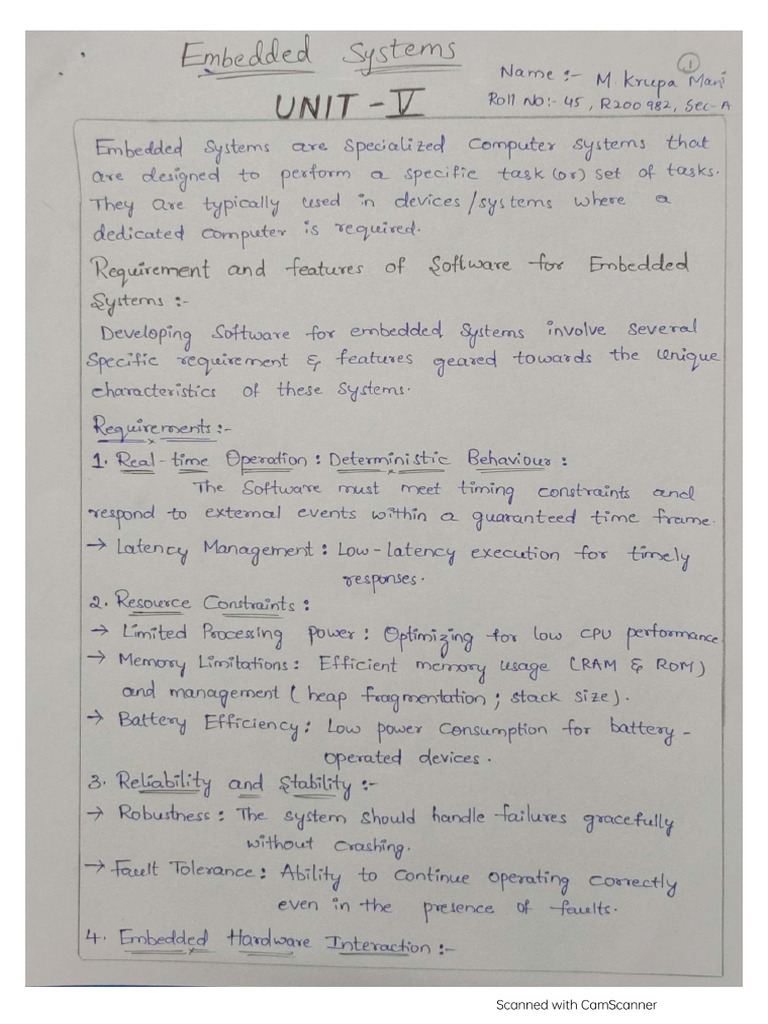 Embedded Systems
1
Name :- M. Krupa Mani
UNIT - V
Roll No:- 45, R200982, Sec-A
Embedded Systems are specialized computer systems that
are designed to perform a specific task (or) set of tasks.
They are typically used in devices/systems where a
dedicated computer is required.
Requirement and features of Software for Embedded
Systems :-
Developing Software for embedded Systems involve several
specific requirement & features geared towards the unique
characteristics of these systems.
Requirements :-
1. Real-time Operation : Deterministic Behaviour :
The Software must meet timing constraints and
respond to external events within a guaranteed time frame.
→ Latency Management : Low-latency execution for timely
responses.
2. Resource Constraints :
→ Limited Processing power : Optimizing for low CPU performance
→ Memory Limitations : Efficient memory usage (RAM & ROM)
and management (heap fragmentation ; stack size).
→ Battery Efficiency : Low power consumption for battery -
operated devices.
3. Reliability and Stability :-
→ Robustness : The system should handle failures gracefully
without crashing.
→ Fault Tolerance : Ability to continue operating correctly
even in the presence of faults.
4. Embedded Hardware Interaction :-
Scanned with CamScanner